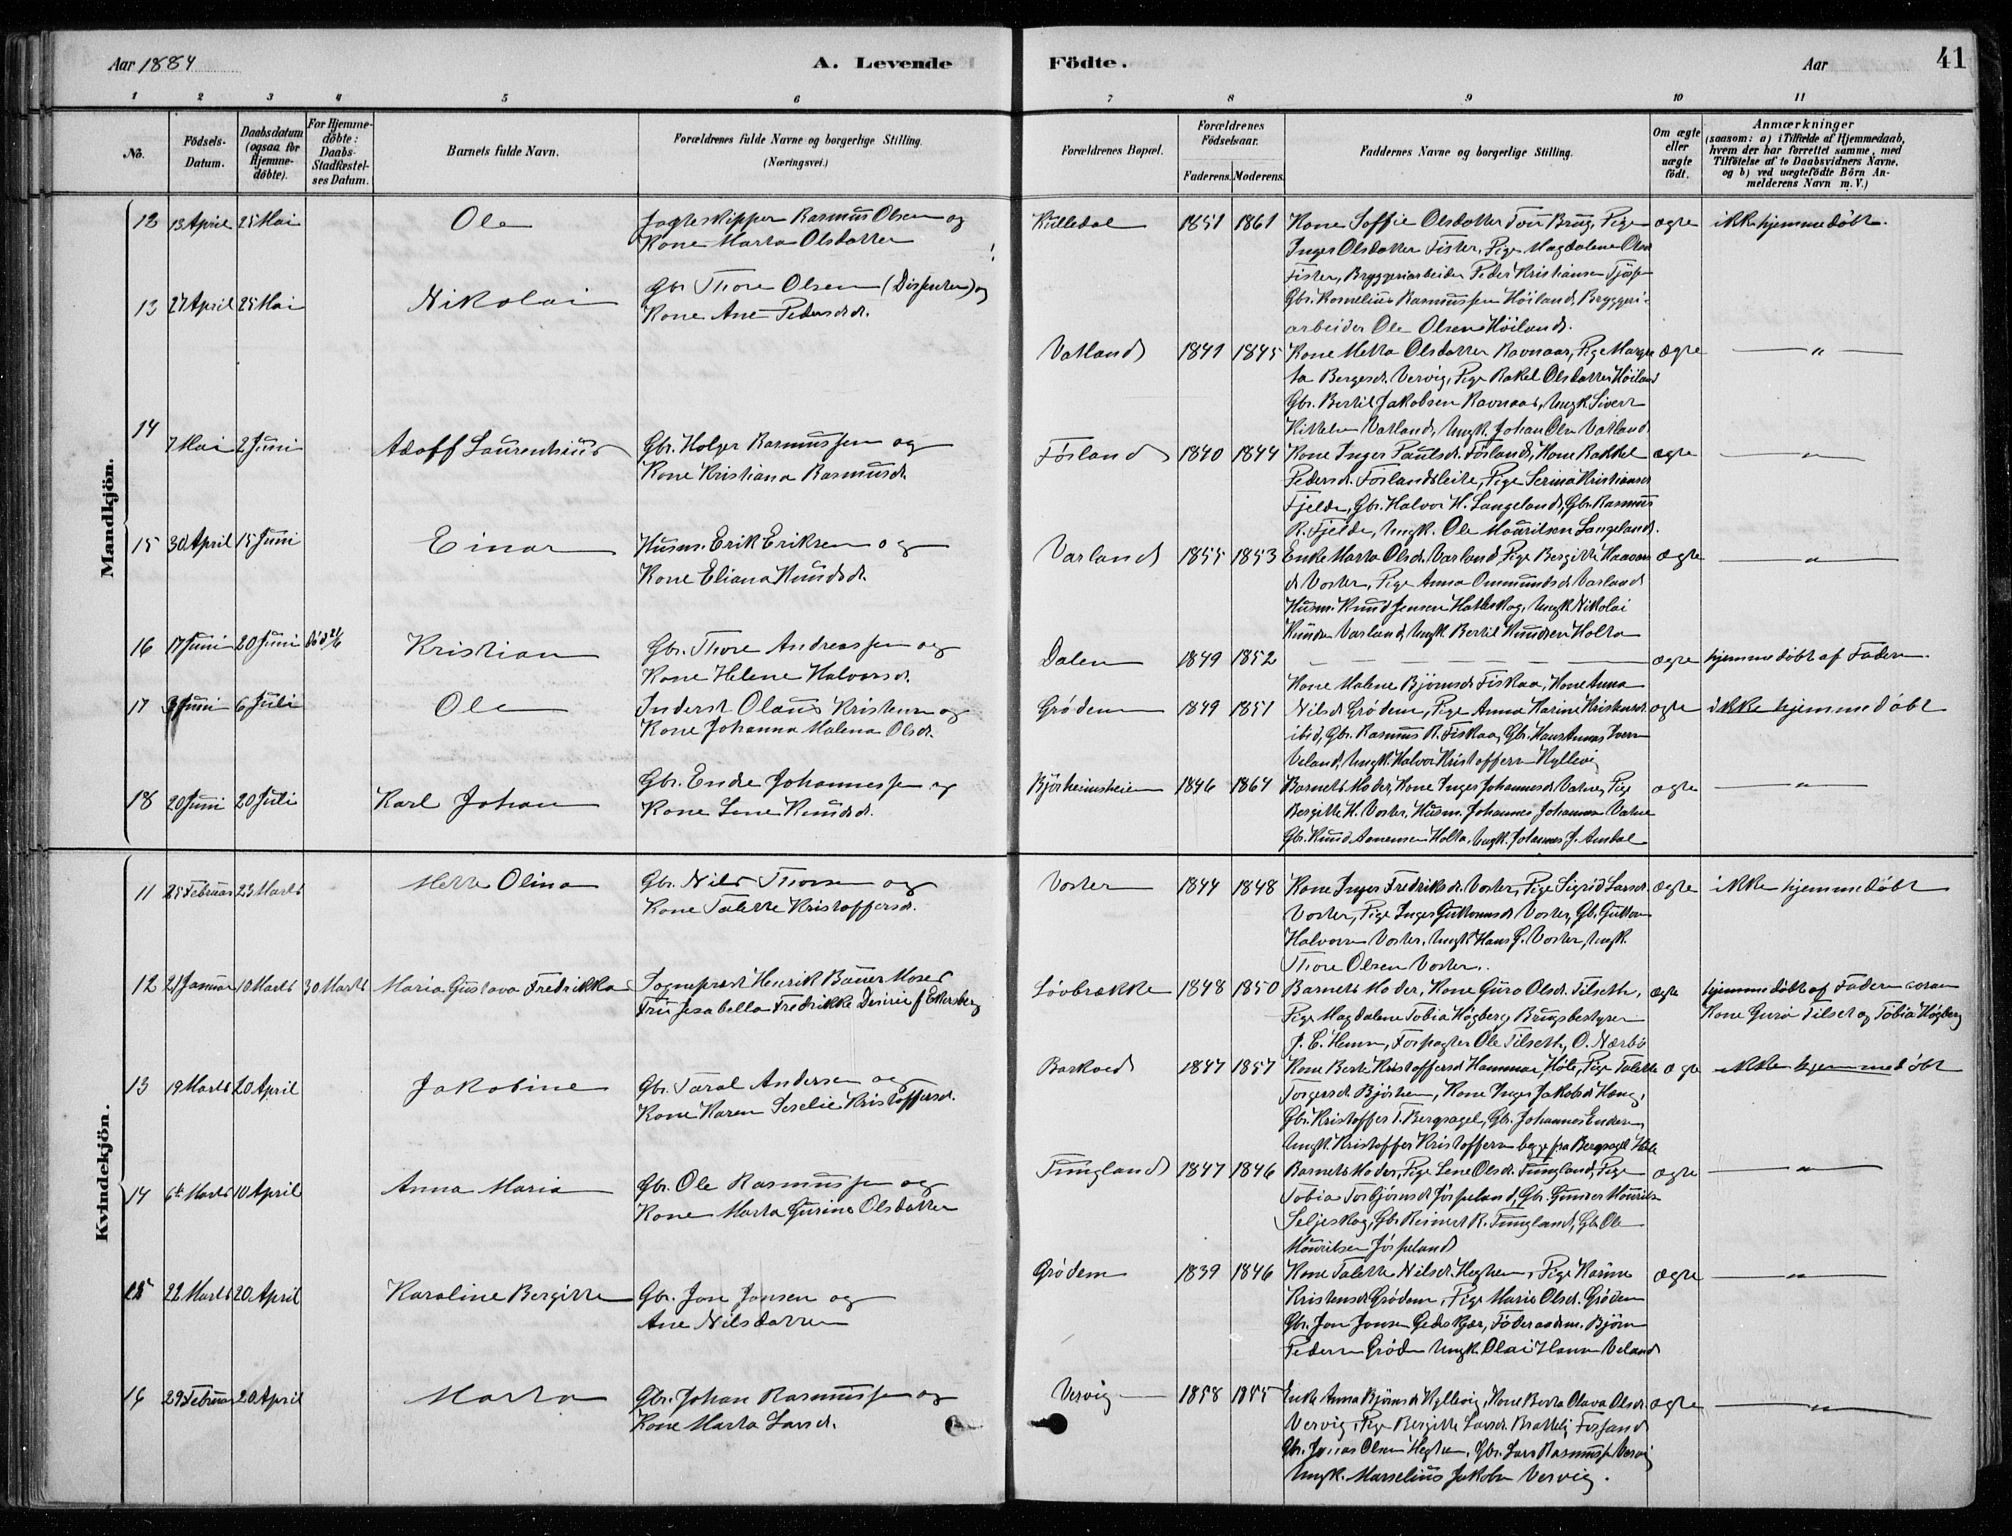 Aar 1884
A. Levende
Födte.
Aar
41
1 2 3 4 5 6 7 8 9 10 11
No.
Födsels-Datum.
Daabsdatum (ogsaa for Hjemme-döbte).
For Hjemme-döbte: Daabs-Stadfæstel-ses Datum.
Barnets fulde Navn.
Forældrenes fulde Navne og borgerlige Stilling.
(Næringsvei.)
Forældrenes Bopæl.
Forældrenes Födselsaar.
Faderens. Moderens.
Faddernes Navne og borgerlige Stilling.
Om ægte eller uægte födt.
Anmærkninger
(saasom: a) i Tilfælde af Hjemmedaab,
hvem der har forrettet samme, med
Tilföielse af to Daabsvidners Navne,
og b) ved uægtefödte Börn An-
melderens Navn m. V.)
Mandkjön.
12 13 April 25 Mai Ole Jagteskipper Rasmus Olsen og
Kone Marta Olsdatter
Kulledal 1851 1861 Kone Soffie Olsdatter Tou Brug, Pige
Inger Olsdatter Fister, Pige Magdalene Olsd
Fister, Bryggeriarbeider Peder Kristiansen
Gbr. Kornelius Rasmussen Höiland, Bryggeri-
arbeider Ole Olsen Höiland.
ægte ikke hjemmedöbt.
13 27 April 25 Mai Nikolai Gbr. Thore Olsen og
Kone Ane Pedersdr.
Vatland 1841 1845 Kone Metta Olsdatter Ravnaas, Pige Margre
ta Bergesdr. Vervig, Pige Rakel Olsdatter Höiland
Gbr. Bertil Jakobsen Ravnaas, Ungk. Sivert
Kittelsen Vatland, Ungk. Johan Olsen Vatland
ægte — " —
14 7 Mai 2 Juni Adolf Laurentius Gbr. Holger Rasmussen og
Kone Kristiana Rasmusdr.
Forland 1840 1844 Kone Inger Paulsdr. Forland, Kone Rakkel
Pedersdr. Forlandsleite, Pige Serina Kristiansdr
Fjelde, Gbr. Halvor H. Langeland, Gbr. Rasmus
R. Fjelde, Ungk. Ole Mouritsen Langeland.
ægte — " —
15 30 April 15 Juni Einar Husm. Erik Eriksen og
Kone Eliana Knudsdr.
Varland 1855 1853 Enke Marta Olsdr. Varland, Pige Bergitte
Voster, Pige Anna Ommundsd. Varland
Husm. Knud Jensen Ungk. Nikolai
Knudsen Varland, Ungk. Bertil Knudsen Holta
ægte — " —
16 17 Juni 20 Juni död 21/6 Kristian Gbr. Thore Andreassen og
Kone Helene Halvorsdr.
Dalen 1849 1852 — — — ægte hjemmedöbt af Faderen.
17 3 Juni 6 Juli Ole Inderst Olaus Kristensen og
Kone Johanna Malena Olsdr.
Grödem 1849 1851 Kone Malene Björnsdr Fiskaa, Kone Anna
Nilsdr Grödem, Pige Anna Karine Kristensdr.
ibid, Gbr. Rasmus R. Fiskaa, Gbr. Hans
Veland, Ungk. Halvor Kristoffersen Hyllevig
ægte ikke hjemmedöbt
18 20 Juni 20 Juli Karl Johan Gbr. Endre Johannessen og
Kone Lene Knudsd.
Björheimsheien 1846 1864 Barnets Moder, Kone Inger Johannesdr. Vatne, Pige
Bergitte K. Voster, Husm. Johannes Johannesen Vatne
Gbr. Knud Holta, Ungk. Johannes J.
ægte — " —
Kvindekjön.
11 25 Februar 23 Marts Mette Olina Gbr. Nils Thorsen og
Kone Talette Kristoffersdr.
Voster 1844 1848 Kone Inger Fredriksdr. Voster, Pige Sigrid Larsdr.
Voster, Pige Inger Guttormsdr Voster, Gb. Guttorm
Halvorsen Voster, Ungk Hans G. Voster, Ungk.
Thore Olsen Voster.
ægte ikke hjemmedöbt
12 21 Januar 10 Marts 30 Marts Maria Gustava Fredrikka Sogneprest Henrik Bauer Moses
Fru Isabella Fredrikke Desirie f Eckersberg
Lövbrække 1848 1850 Barnets Moder, Kone Guro Olsdr. Tilseth,
Pige Magdalene Tobia Högberg Brugsbestyrer
Forpagter Ole Tilseth, O. Nærbö
ægte hjemmedöbt af Faderen coram
Kone Guro Tilset og Tobia Högberg
13 19 Marts 20 April Jakobine Gbr. Taral Andersen og
Kone Karen Seselie Kristoffersdr.
Barkved 1847 1857 Kone Berte Kristoffersd Hammar Höle, Pige Talette
Torgersdr. Björheim, Kone Inger Jakobsdr
Gbr. Kristoffer T. Bergsagel, Gbr. Johannes Endresen,
Ungk. Kristoffer Kristoffersen begge fra Bergsagel Höle
ægte ikke hjemmedöbt
14 6te Marts 10 April Anna Maria Gbr. Ole Rasmussen og
Kone Marta Gurine Olsdatter
Tungland 1847 1846 Barnets Moder, Pige Lene Olsdr. Tungland, Pige
Tobia Torbjörnsdr Jörpeland, Gbr. Gunder Mouritsen
Seljeskog, Gbr Reinert R. Tungland, Gb. Ole
Mouritsen Jörpeland
ægte — " —
15 22 Marts 20 April Karoline Bergitte Gbr. Jon Jonsen og
Ane Nilsdatter
Grödem 1839 1846 Kone Talette Nilsdr. Pige Karine
Kristensdr Grödem, Pige Marie Olsdr. Gröden
Gbr. Jon Jonsen Föderaadsm. Björn
Pedersen Grödem Ungk. Olai Hansen Veland
ægte — " —
16 29 Februar 20 April Marta Gbr. Johan Rasmussen og
Kone Marta Larsdr.
Vervig 1858 1855 Enke Anna Björnsdr Hyllevig, Kone Berta Olava Olsdr.
Vervig, Pige Bergitte Larsdr. Forsand
Gbr. Jonas Olsen Gbr. Lars Rasmussen Vervig
Ungk. Marselius Jakobsen Vervig.
ægte — " —